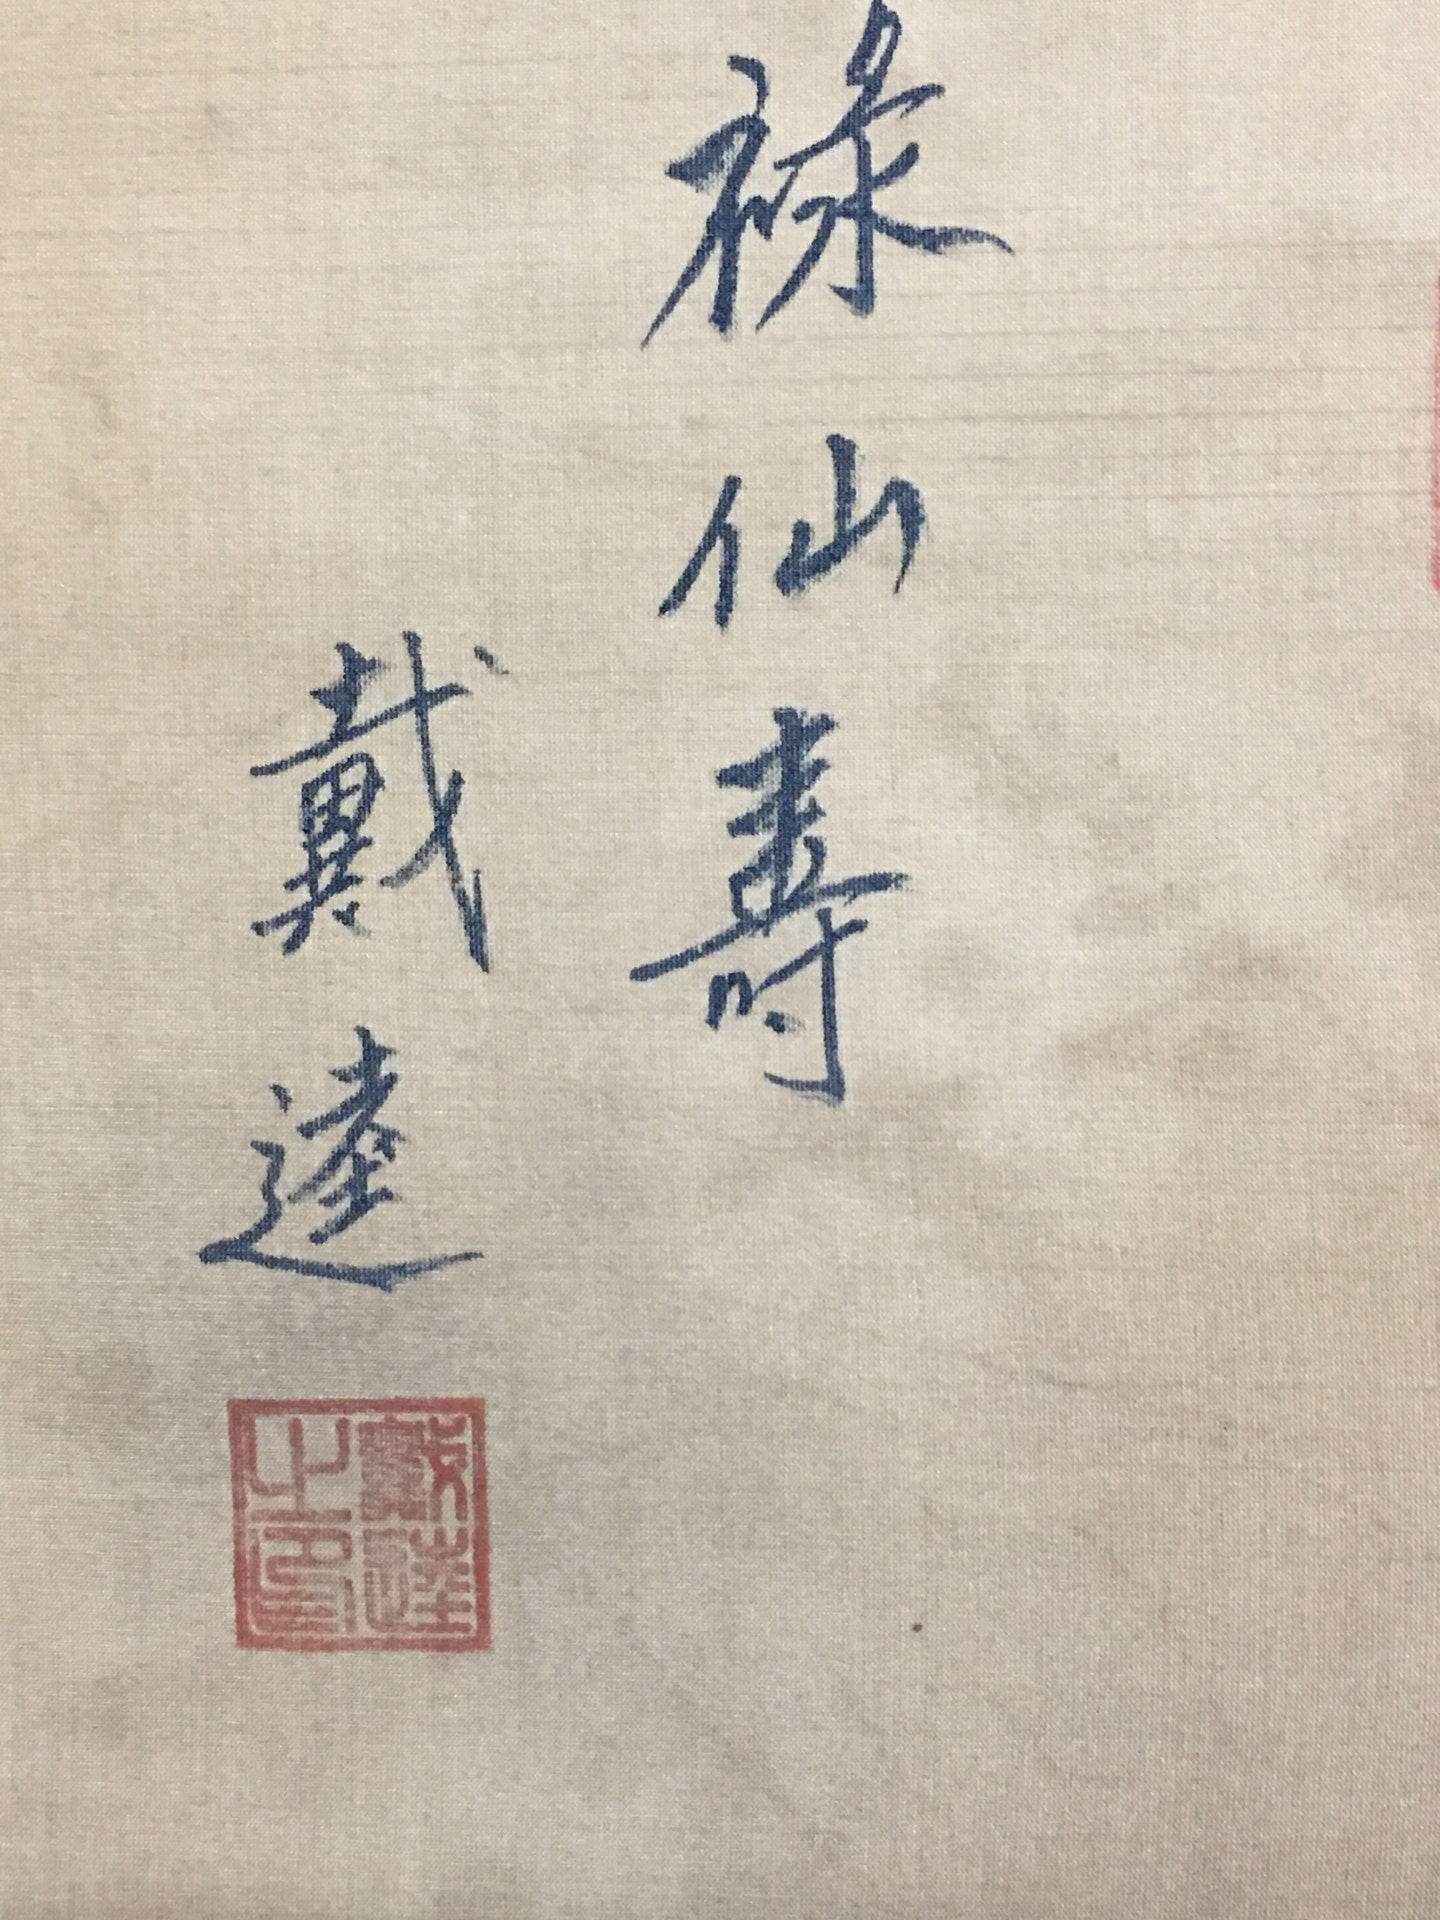 祿仙壽
戴逵
戴逵
之印